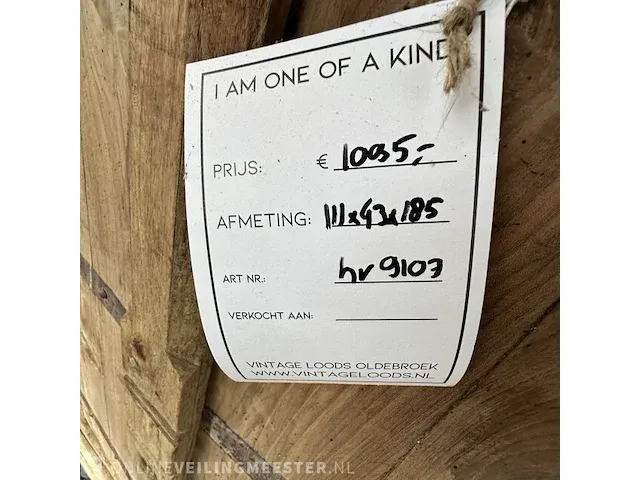 I AM ONE OF A KIND
PRIJS: € 1095,-
AFMETING: 111x43x185
ART NR.: hv9107
VERKOCHT AAN:
VINTAGE LOODS OLDEBROEK
WWW.VINTAGELOODS.NL
ONLINEVEILINGMEESTER.NL